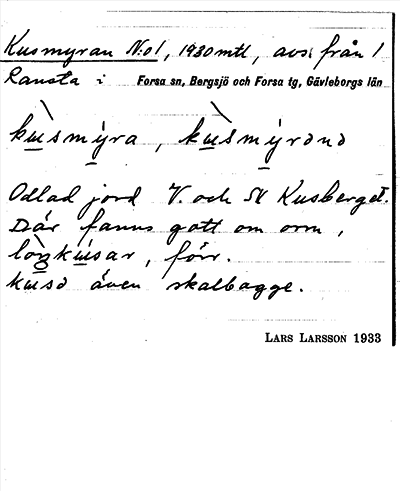 Kusmyran No1, 1930 mtl, avs. från 1
Ransta i Forsa sn, Bergsjö och Forsa tg, Gävleborgs län
kùsmýra, kùsmýrənə
Odlad jord V. och SV Kusberget.
Där fanns gott om orm,
kusə även skalbagge.
LARS LARSSON 1933